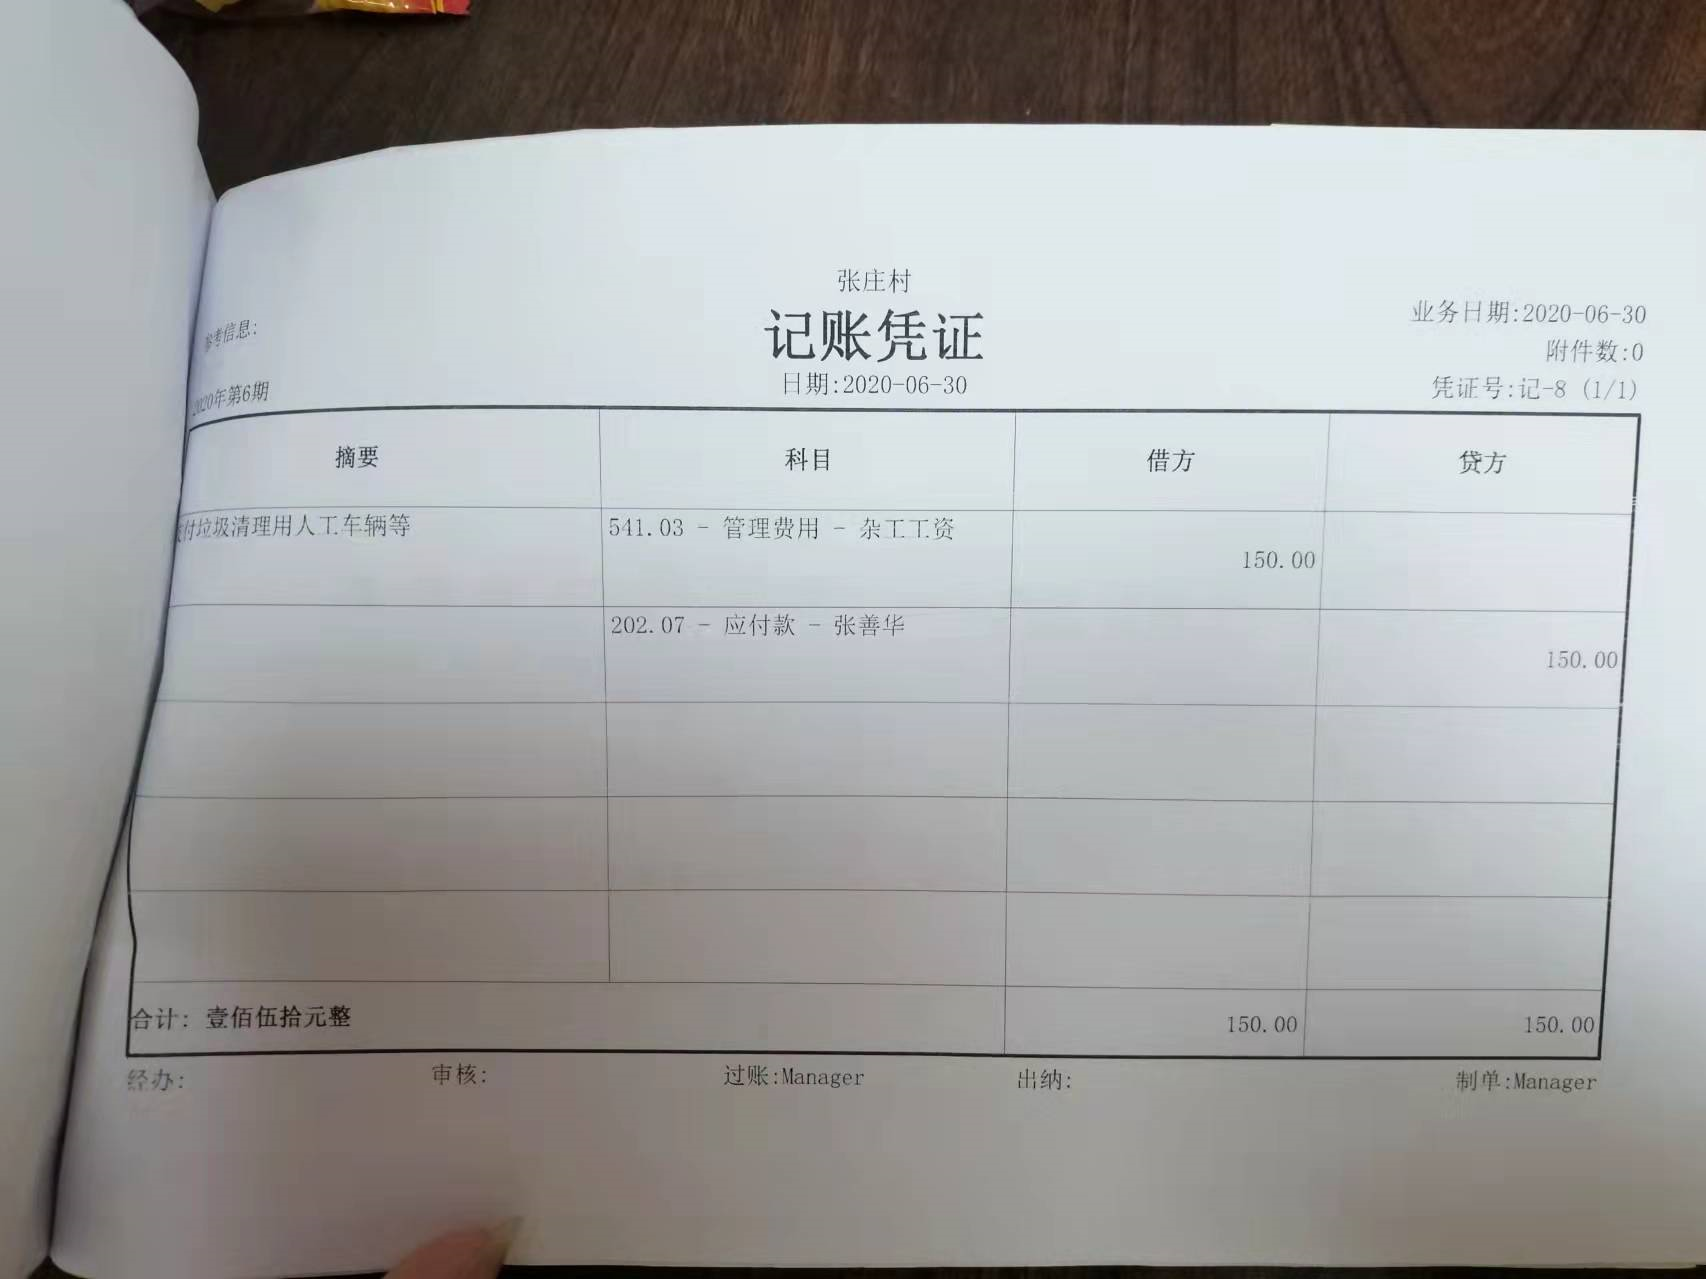 张庄村
记账凭证
参考信息:
业务日期:2020-06-30
附件数:0
日期:2020-06-30
2020年第6期
凭证号:记-8 (1/1)
摘要 科目 借方 贷方
支付垃圾清理用人工车辆等 541.03 - 管理费用 - 杂工工资 150.00
202.07 - 应付款 - 张善华 150.00
合计: 壹佰伍拾元整 150.00 150.00
经办: 审核: 过账:Manager 出纳: 制单:Manager